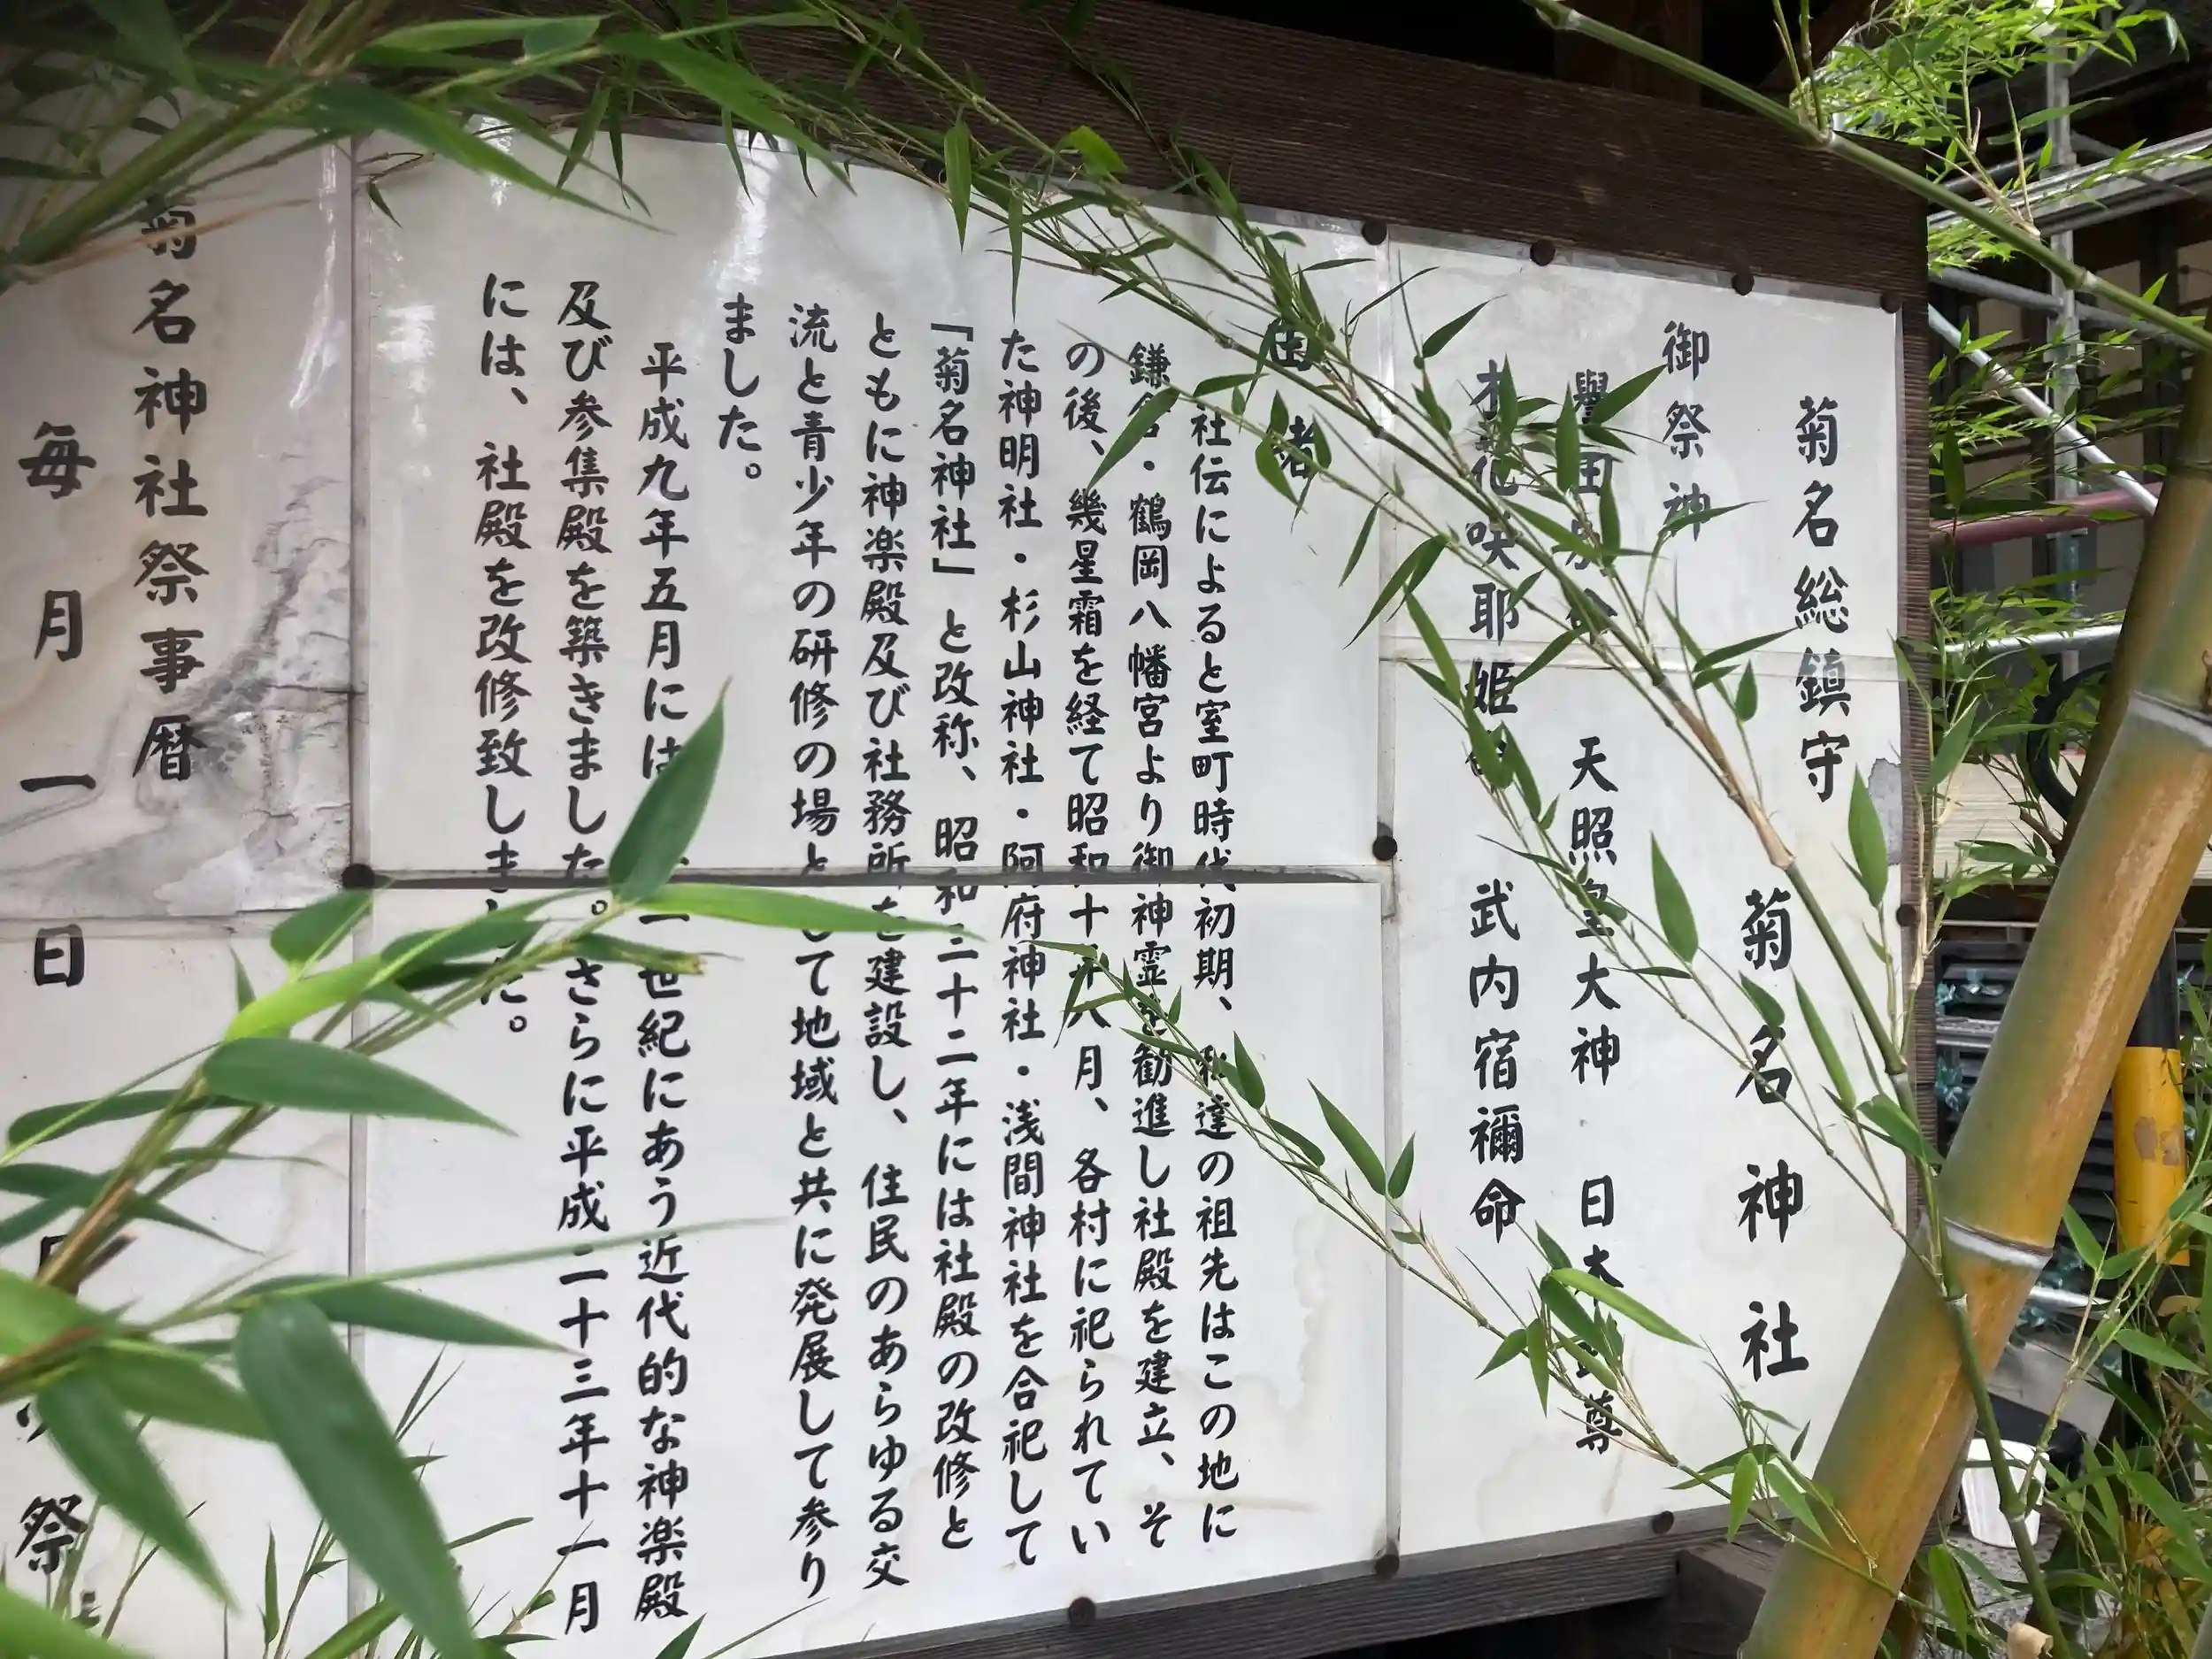 菊名総鎮守
菊名神社
御祭神
譽田
天照皇大神
日本
尊
木
花咲耶姫
武内宿禰命
由緒
社伝によると室町時代初期、私達の祖先はこの地に
鎌倉・鶴岡八幡宮より御神霊を勧進し社殿を建立、そ
の後、幾星霜を経て昭和十
八月、各村に祀られてい
た神明社・杉山神社・阿府神社・浅間神社を合祀して
「菊名神社」と改称、昭和三十二年には社殿の改修と
ともに神楽殿及び社務所を建設し、住民のあらゆる交
流と青少年の研修の場として地域と共に発展して参り
ました。
平成九年五月には
世紀にあう近代的な神楽殿
及び参集殿を築きました。さらに平成二十三年十一月
には、社殿を改修致しました。
菊名神社祭事暦
毎月一日
祭